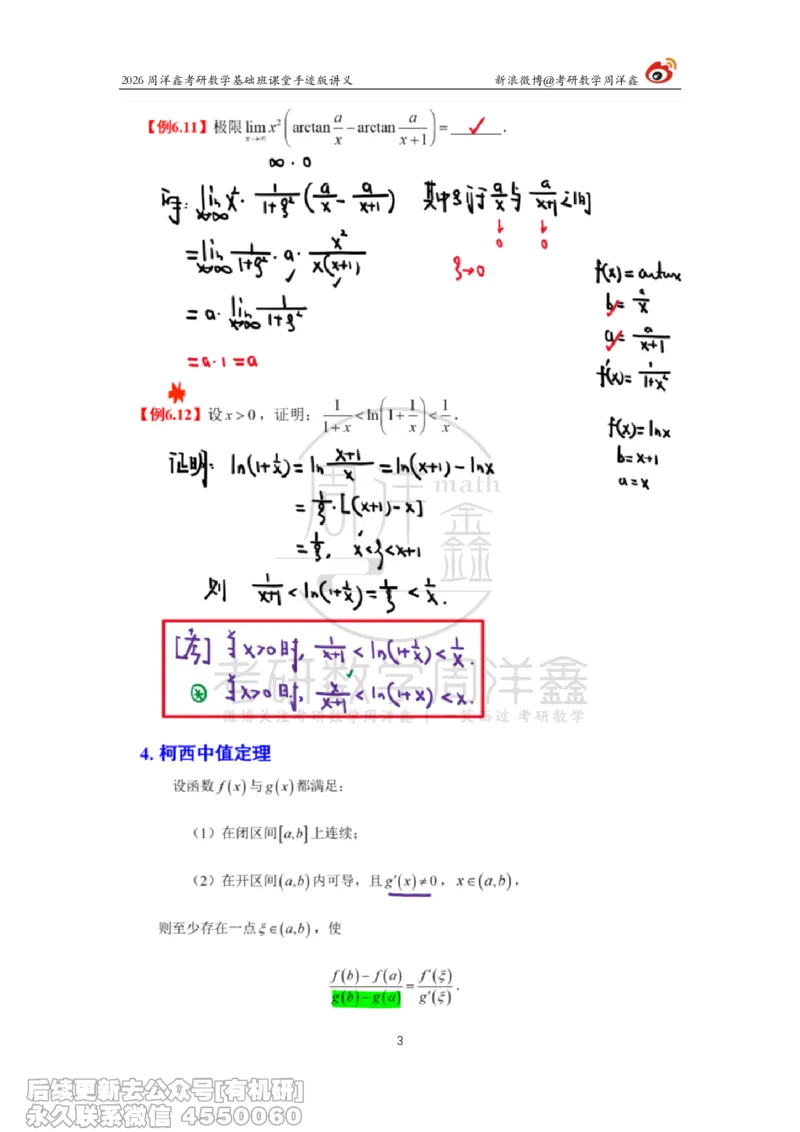 2026 周洋鑫考研数学基础班课堂手迹版讲义 新浪微博@考研数学周洋鑫
【例6.11】极限 lim_{x→∞} x²(arctan a/x − arctan a/(x+1)) = ______ .
∞·0
lim_{x→∞} x²· 1/(1+ξ²) (a/x − a/(x+1)) 其中ξ介于 a/x 与 a/(x+1) 之间
↓0 ↓0
= lim_{x→∞} 1/(1+ξ²) · a · x²/(x(x+1)) ξ→0
= a· lim_{x→∞} 1/(1+ξ²)
= a·1 = a
f(x)= arctanx
b= a/x
a= a/(x+1)
f′(x)= 1/(1+x²)
【例6.12】设 x>0，证明： 1/(1+x) < ln(1+1/x) < 1/x .
证明: ln(1+1/x) = ln (x+1)/x = ln(x+1) − lnx
= 1/ξ·[(x+1)−x]
= 1/ξ, x<ξ<x+1
则 1/(x+1) < ln(1+1/x) = 1/ξ < 1/x.
f(x)= lnx
b= x+1
a= x
[考] 当 x>0 时, 1/(x+1) < ln(1+1/x) < 1/x.
当 x>0 时, x/(x+1) < ln(1+x) < x.
周洋鑫
math
考研数学周洋鑫
微博关注考研数学周洋鑫 | 一笑而过 考研数学
4. 柯西中值定理
设函数 f(x) 与 g(x) 都满足：
（1）在闭区间[a,b]上连续；
（2）在开区间(a,b)内可导，且 g′(x)≠0，x∈(a,b)，
则至少存在一点 ξ∈(a,b)，使
(f(b)−f(a))/(g(b)−g(a)) = f′(ξ)/g′(ξ) .
3
后续更新去公众号[有机研]
永久联系微信 4550060